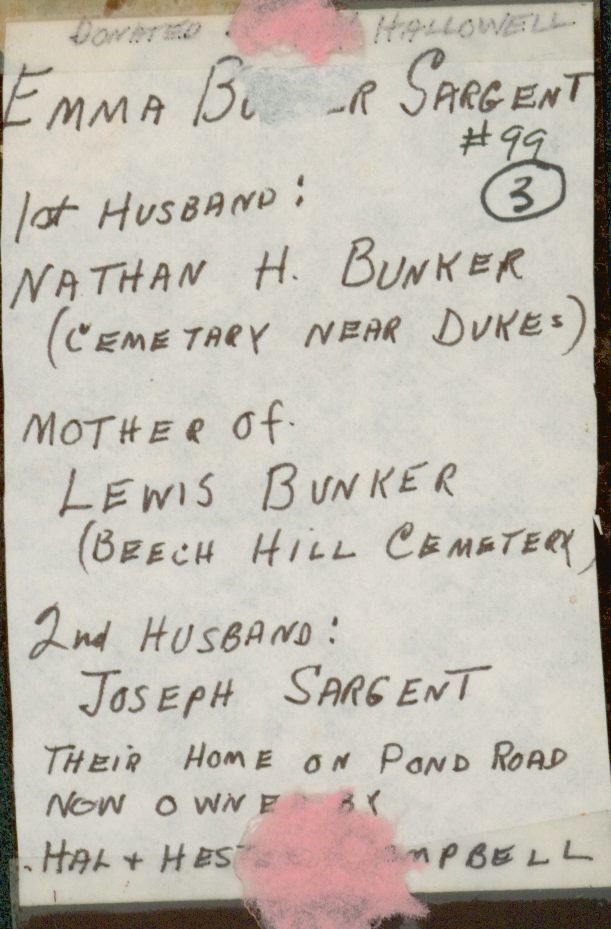 DONATED HALLOWELL
EMMA SARGENT
#99
3
1st HUSBAND:
NATHAN H. BUNKER
(CEMETARY NEAR DUKES)
MOTHER Of
LEWIS BUNKER
(BEECH HILL CEMETERY)
2nd HUSBAND:
JOSEPH SARGENT
THEIR HOME ON POND ROAD
NOW OWNE BY
HAL + HES MPBELL